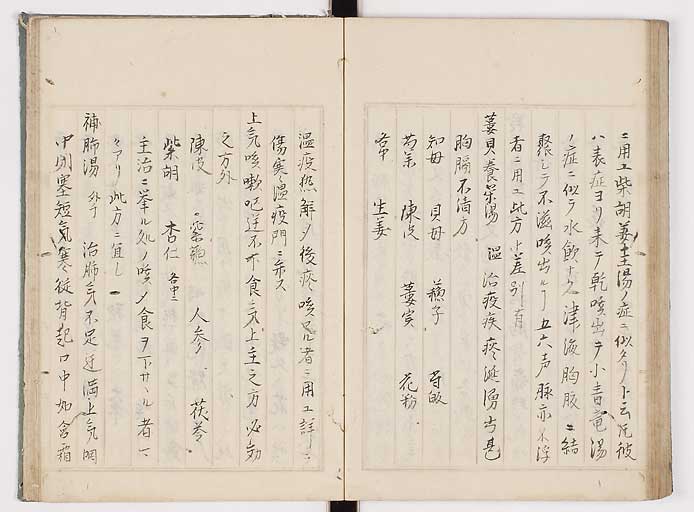 ニ用ユ柴胡姜桂湯ノ症ニ似タリト云圧彼
ハ表症ヨリ来テ乾咳出テ小青竜湯
ノ症ニ似テ水飲ナク津液胸腹ニ結
聚シテ不滋咳出ル 五六声脉亦不浮
者ニ用ユ此方ト差別有
蔞貝養栄湯 温 治疫疾痰涎湧出甚
胸膈不清方
知母 貝母 蘓子 芍薬
当帰 陳皮 蔞実 花粉
生姜
温疫熱解メ後痰咳 者ニ用ユ詳ニ
傷寒温疫門ニ赤ス
上気咳嗽呃逆不下食 気上主之方必効
之方 外
陳皮 紫蘓 人参 茯苓
柴胡 杏仁 各
主治ニ挙ル処ノ咳メ食ヲ下サヽル者
アリ此方ニ宜し
補肺湯 外千 治肺気不足逆満上気
中閉塞短気寒従背起口中如含霜